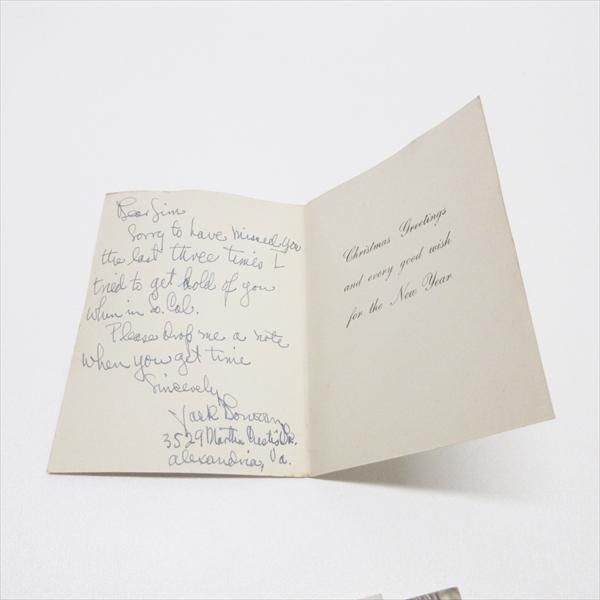 Dear Jim
Sorry to have missed you
the last three times I
tried to get hold of you
when in So. Cal.
Please drop me a note
when you get time
Sincerely
Jack
3529 Martha Custis Dr.
Alexandria, Va.
Christmas Greetings
and every good wish
for the New Year